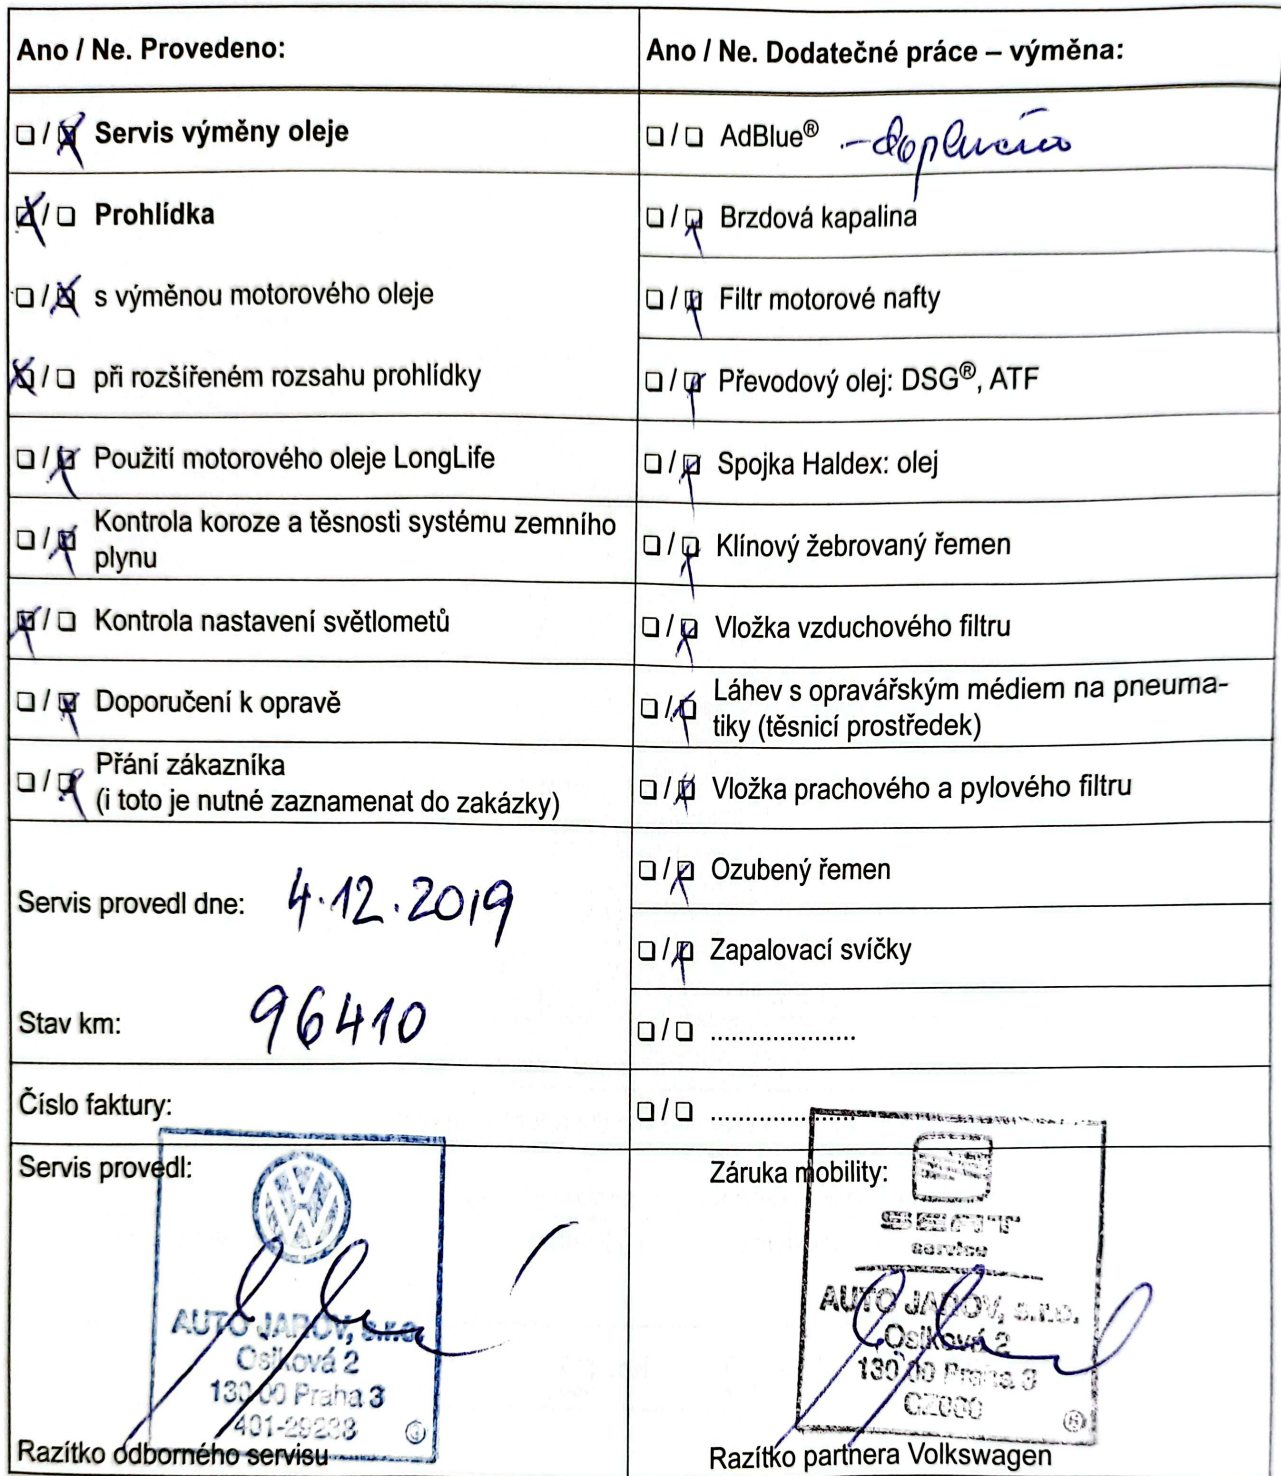 Ano / Ne. Provedeno:
❏ / ❏ Servis výměny oleje
❏ / ❏ Prohlídka
❏ / ❏ s výměnou motorového oleje
❏ / ❏ při rozšířeném rozsahu prohlídky
❏ / ❏ Použití motorového oleje LongLife
❏ / ❏ Kontrola koroze a těsnosti systému zemního
plynu
❏ / ❏ Kontrola nastavení světlometů
❏ / ❏ Doporučení k opravě
❏ / ❏ Přání zákazníka
(i toto je nutné zaznamenat do zakázky)
Servis provedl dne: 4.12.2019
Stav km: 96410
Číslo faktury:
Servis provedl:
AUTO JAROV, s.r.o.
Osiková 2
130 00 Praha 3
401-29238
Razítko odborného servisu
Ano / Ne. Dodatečné práce – výměna:
❏ / ❏ AdBlue® - doplněno
❏ / ❏ Brzdová kapalina
❏ / ❏ Filtr motorové nafty
❏ / ❏ Převodový olej: DSG®, ATF
❏ / ❏ Spojka Haldex: olej
❏ / ❏ Klínový žebrovaný řemen
❏ / ❏ Vložka vzduchového filtru
❏ / ❏ Láhev s opravářským médiem na pneuma-
tiky (těsnicí prostředek)
❏ / ❏ Vložka prachového a pylového filtru
❏ / ❏ Ozubený řemen
❏ / ❏ Zapalovací svíčky
❏ / ❏ .....................
❏ / ❏ .....................
Záruka mobility:
SEAT
service
AUTO JAROV, s.r.o.
Osiková 2
130 00 Praha 3
Razítko partnera Volkswagen